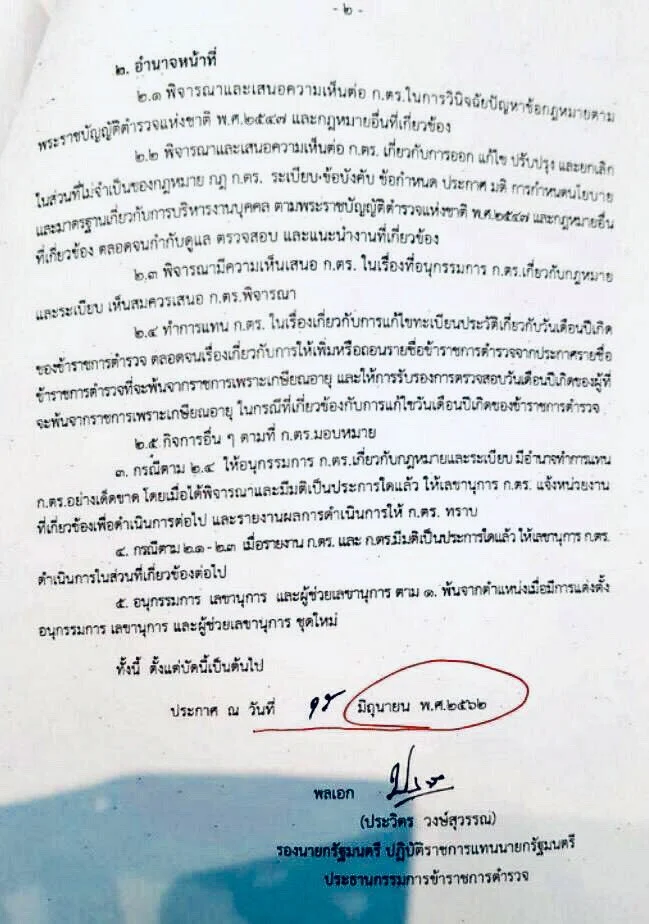 - ๒ -
๒. อำนาจหน้าที่
๒.๑ พิจารณาและเสนอความเห็นต่อ ก.ตร.ในการวินิจฉัยปัญหาข้อกฎหมายตาม
พระราชบัญญัติตำรวจแห่งชาติ พ.ศ.๒๕๔๗ และกฎหมายอื่นที่เกี่ยวข้อง
๒.๒ พิจารณาและเสนอความเห็นต่อ ก.ตร. เกี่ยวกับการออก แก้ไข ปรับปรุง และยกเลิก
ในส่วนที่ไม่จำเป็นของกฎหมาย กฎ ก.ตร. ระเบียบ ข้อบังคับ ข้อกำหนด ประกาศ มติ การกำหนดนโยบาย
และมาตรฐานเกี่ยวกับการบริหารงานบุคคล ตามพระราชบัญญัติตำรวจแห่งชาติ พ.ศ.๒๕๔๗ และกฎหมายอื่น
ที่เกี่ยวข้อง ตลอดจนกำกับดูแล ตรวจสอบ และแนะนำงานที่เกี่ยวข้อง
๒.๓ พิจารณามีความเห็นเสนอ ก.ตร. ในเรื่องที่อนุกรรมการ ก.ตร.เกี่ยวกับกฎหมาย
และระเบียบ เห็นสมควรเสนอ ก.ตร.พิจารณา
๒.๔ ทำการแทน ก.ตร. ในเรื่องเกี่ยวกับการแก้ไขทะเบียนประวัติเกี่ยวกับวันเดือนปีเกิด
ของข้าราชการตำรวจ ตลอดจนเรื่องเกี่ยวกับการให้เพิ่มหรือถอนรายชื่อข้าราชการตำรวจจากประกาศรายชื่อ
ข้าราชการตำรวจที่จะพ้นจากราชการเพราะเกษียณอายุ และให้การรับรองการตรวจสอบวันเดือนปีเกิดของผู้ที่
จะพ้นจากราชการเพราะเกษียณอายุ ในกรณีที่เกี่ยวข้องกับการแก้ไขวันเดือนปีเกิดของข้าราชการตำรวจ
๒.๕ กิจการอื่น ๆ ตามที่ ก.ตร.มอบหมาย
๓. กรณีตาม ๒.๔ ให้อนุกรรมการ ก.ตร.เกี่ยวกับกฎหมายและระเบียบ มีอำนาจทำการแทน
ก.ตร.อย่างเด็ดขาด โดยเมื่อได้พิจารณาและมีมติเป็นประการใดแล้ว ให้เลขานุการ ก.ตร. แจ้งหน่วยงาน
ที่เกี่ยวข้องเพื่อดำเนินการต่อไป และรายงานผลการดำเนินการให้ ก.ตร. ทราบ
๔. กรณีตาม ๒.๑ - ๒.๓ เมื่อรายงาน ก.ตร. และ ก.ตร.มีมติเป็นประการใดแล้ว ให้เลขานุการ ก.ตร.
ดำเนินการในส่วนที่เกี่ยวข้องต่อไป
๕. อนุกรรมการ เลขานุการ และผู้ช่วยเลขานุการ ตาม ๑. พ้นจากตำแหน่งเมื่อมีการแต่งตั้ง
อนุกรรมการ เลขานุการ และผู้ช่วยเลขานุการ ชุดใหม่
ทั้งนี้ ตั้งแต่บัดนี้เป็นต้นไป
ประกาศ ณ วันที่ มิถุนายน พ.ศ.๒๕๖๒
พลเอก
(ประวิตร วงษ์สุวรรณ)
รองนายกรัฐมนตรี ปฏิบัติราชการแทนนายกรัฐมนตรี
ประธานกรรมการข้าราชการตำรวจ